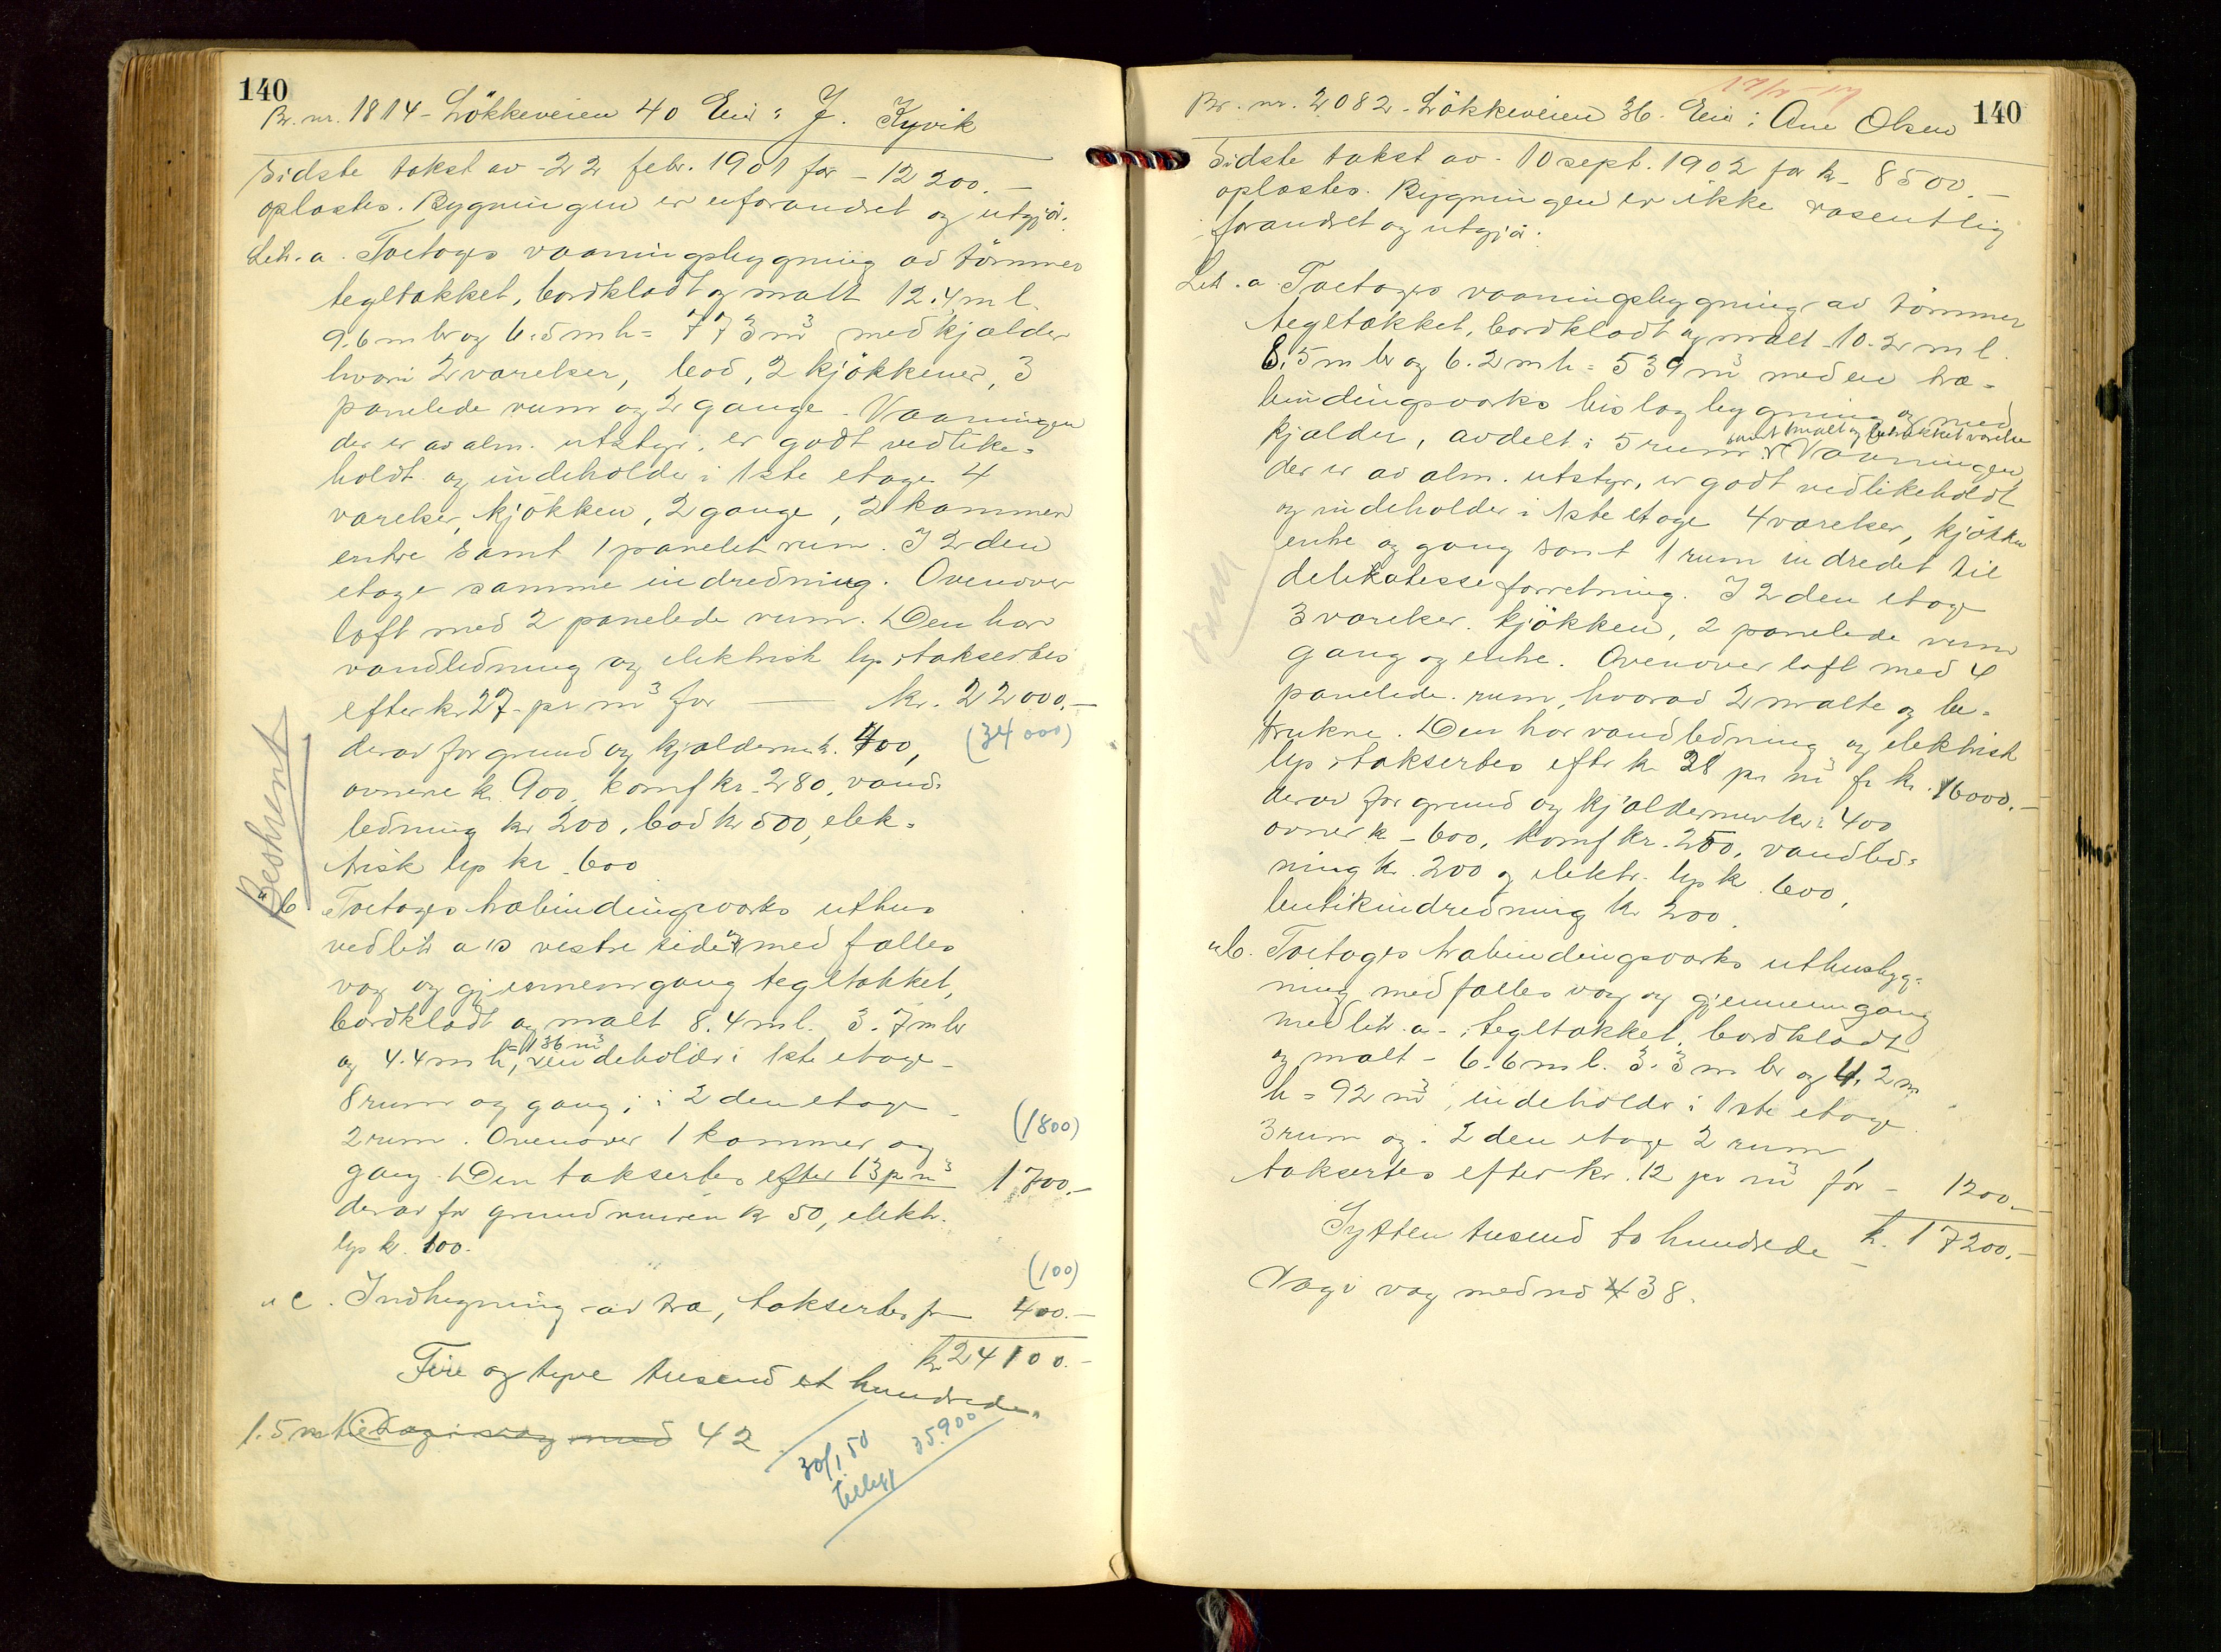 140
Br. nr. 1814 - Lökkeveien 40 Eier: J. Kyvik
Sidste takst av 22 febr. 1901 for - 12200.-
oplæstes. Bygningen er uforandret og utgjör:
Litr. a. Toetages vaaningsbygning av tömmer
tegltækket, bordklædt og malt 12.4 m l.
9.6 m br og 6.5 m h = 773 m³ med kjælder
hvori 2 værelser, bod, 2 kjökkener, 3
panelede rum og 2 gange. Vaaningen
der er av alm. utstyr, er godt vedlike-
holdt og indeholder i 1ste etage 4
værelser, kjökken, 2 gange, 2 kammer
entre samt 1 panelet rum. I 2den
etage samme indredning. Ovenover
loft med 2 panelede rum. Den har
vandledning og elektrisk lys, taksertes
efter kr 27 - pr m³ for — kr. 22000.-
derav for grund og kjældermur k. 400, (34000)
ovnene k 900, komf kr. 280, vand-
ledning kr 200, bad kr 500, elek-
trisk lys kr. 600.
Beskrent
" b. Toetages træbindingsværks uthus
ved litr a's vestre side med fælles
væg og gjennemgang tegltækket,
bordklædt og malt 8.4 m l. 3.7 m br
og 4.4 m h, = 136 m³ indeholder i 1ste etage
8 rum og gang; i 2den etage
2 rum. Ovenover 1 kammer og (1800)
gang. Den taksertes efter 13 pr m³ 1700.-
derav for grundmuren kr 50, elektr.
lys kr. 100.
(100)
" c. Indhegning av træ, takserts for 400.-
kr 24100.-
Fire og tyve tusend et hundrede.
1.5 m til Dagi væg med 42
30/1 50 35.900
tillegg
17/2-17
140
Br. nr. 2082 - Lökkeveien 36. Eier: Ane Olsen
Sidste takst av - 10 sept. 1902 for kr - 8500.-
oplæstes. Bygningen er ikke væsentlig
forandret og utgjör:
Litr. a. Toetages vaaningsbygning av tömmer
tegltækket, bordklædt og malt - 10.2 m l.
8.5 m br og 6.2 m h = 539 m³ med en træ-
bindingsværks bislagbygning og med
kjælder, avdelt i 5 rum samt malt og betrukket værelse. Vaaningen
der er av alm. utstyr, er godt vedlikeholdt
og indeholder i 1ste etage 4 værelser, kjökken
entre og gang samt 1 rum indredet til
delikatesseforretning. I 2den etage
3 værelser, kjökken, 2 panelede rum
gang og entre. Ovenover loft med 4
panelede rum, hvorav 2 malte og be-
trukne. Den har vandledning og elektrisk
lys, taksertes eftr kr 28 pr m³ fr kr. 16000.-
derav for grund og kjældermur kr. 400
ovner k - 600, komf kr. 250, vandled-
ning kr. 200 og elektr. lys k. 600,
butikindredning kr 200.
" b. Toetages træbindingsværks uthusbyg-
ning med fælles væg og gjennemgang
med litr. a -; tegltækket, bordklædt
og malt - 6.6 m l. 3.3 m br og 4.2 m
h = 92 m³, indeholder i 1ste etage
3 rum og i 2den etage 2 rum,
takserts efter kr. 12 pr m³ for - 1200.-
Sytten tusend to hundrede kr. 17200.-
Dagi væg med no 38.